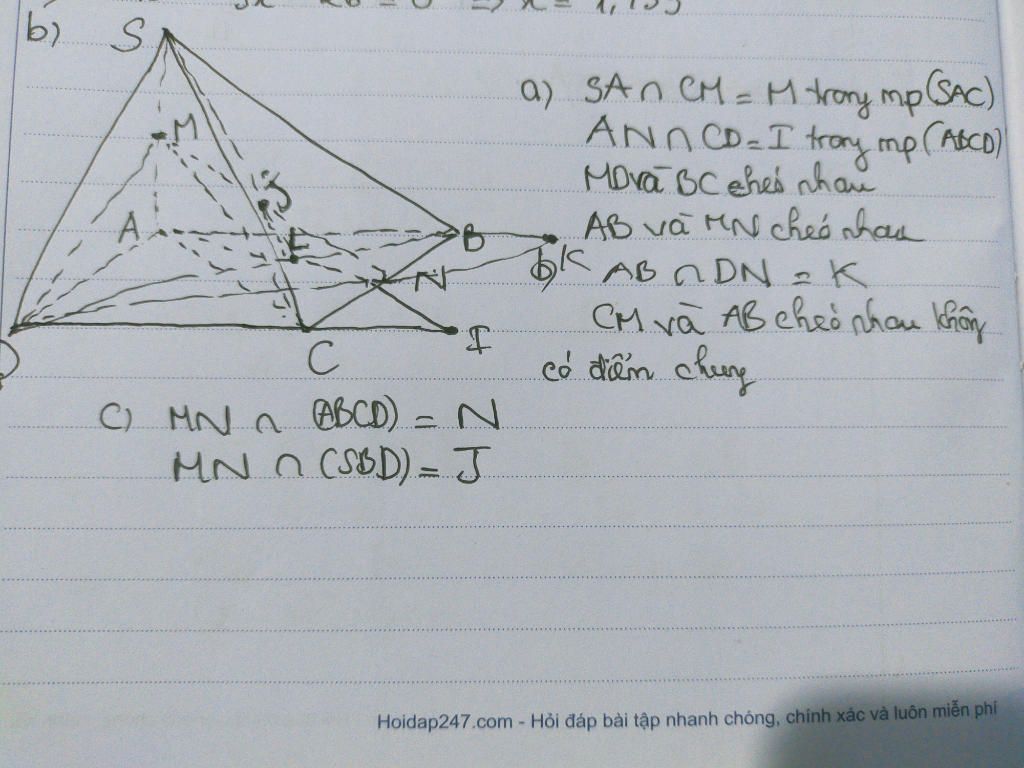 b)
S
M
J
A
E
B
K
N
C
I
a) SA ∩ CM = M trong mp (SAC)
AN ∩ CD = I trong mp (ABCD)
MD và BC chéo nhau
AB và MN chéo nhau
b) AB ∩ DN = K
CM và AB chéo nhau không
có điểm chung
c) MN ∩ (ABCD) = N
MN ∩ (SBD) = J
Hoidap247.com - Hỏi đáp bài tập nhanh chóng, chính xác và luôn miễn phí